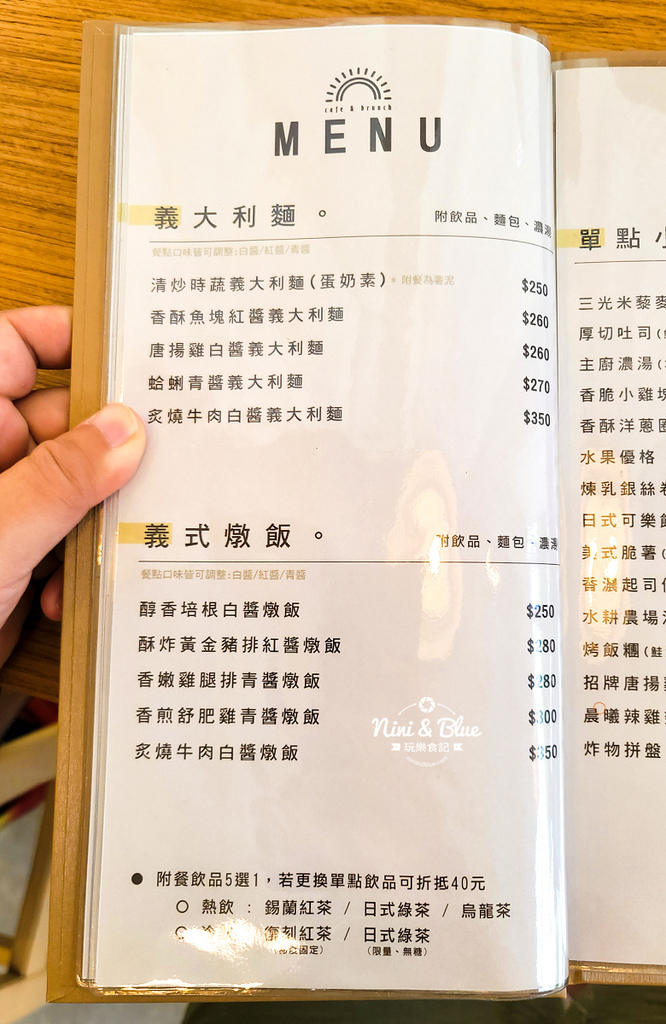 cafe & brunch
MENU
義大利麵。 附飲品、麵包、濃湯
餐點口味皆可調整:白醬/紅醬/青醬
清炒時蔬義大利麵(蛋奶素)*附餐為薯泥 $250
香酥魚塊紅醬義大利麵 $260
唐揚雞白醬義大利麵 $260
蛤蜊青醬義大利麵 $270
炙燒牛肉白醬義大利麵 $350
義式燉飯。 附飲品、麵包、濃湯
餐點口味皆可調整:白醬/紅醬/青醬
醇香培根白醬燉飯 $250
酥炸黃金豬排紅醬燉飯 $280
香嫩雞腿排青醬燉飯 $280
香煎舒肥雞青醬燉飯 $300
炙燒牛肉白醬燉飯 $350
Nini & Blue
玩樂食記
● 附餐飲品5選1,若更換單點飲品可折抵40元
○ 熱飲 : 錫蘭紅茶 / 日式綠茶 / 烏龍茶
復刻紅茶 / 日式綠茶
固定) (限量、無糖)
單點小
三光米藜麥
厚切吐司(
主廚濃湯(
香脆小雞塊
香酥洋蔥圈
水果優格
煉乳銀絲卷
日式可樂餅
美式脆薯(
香濃起司
水耕農場
烤飯糰(鮭
招牌唐揚
晨曦辣雞
炸物拼盤